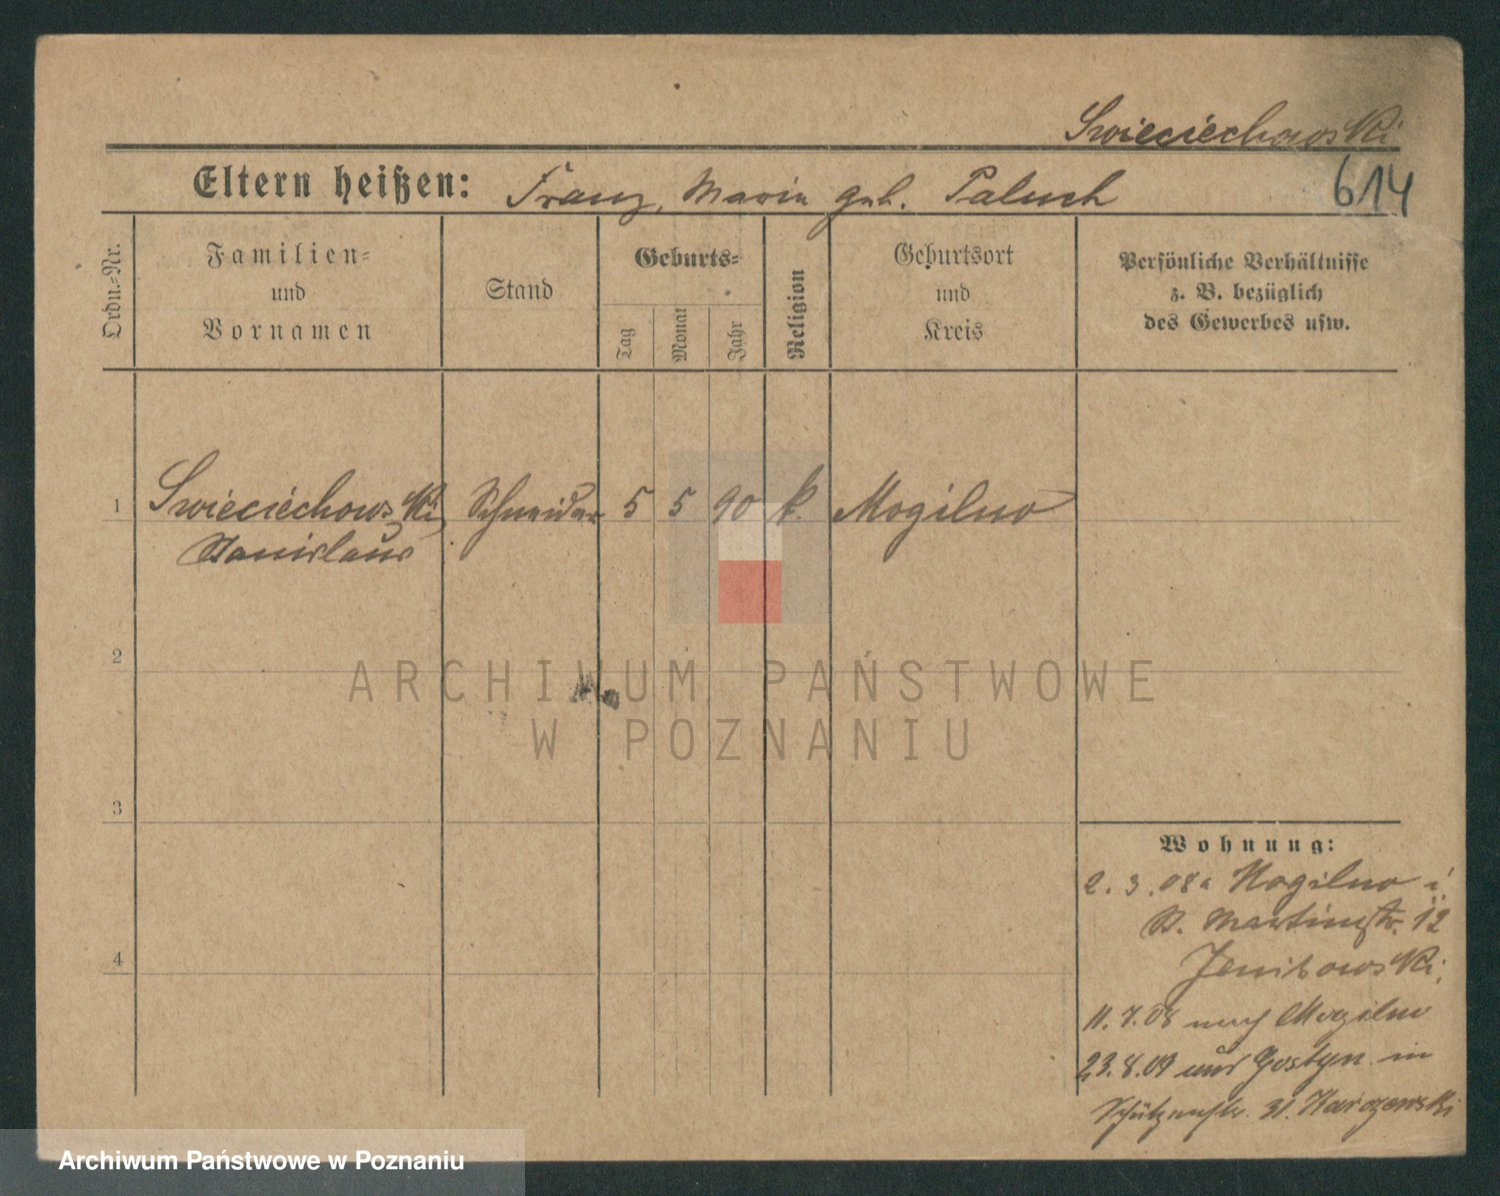 Swieciechowski
Eltern heißen: Franz, Maria geb. Paluch
614
Ordn.-Nr.
Familien-
und
Vornamen
Stand
Geburts-
Tag
Monat
Jahr
Religion
Geburtsort
und
Kreis
Persönliche Verhältnisse
z. B. bezüglich
des Gewerbes usw.
1 Swieciechowski Schneider 5 5 90 k. Mogilno
Stanislaus
2
ARCHIWUM PAŃSTWOWE
W POZNANIU
3
Wohnung:
2. 3. 08 Mogilno i
St. Martinstr. 12
4
11. 7. 08 nach Mogilno
23. 8. 09 aus Gostyn in
Schützenstr. 31. Karczewski
Archiwum Państwowe w Poznaniu